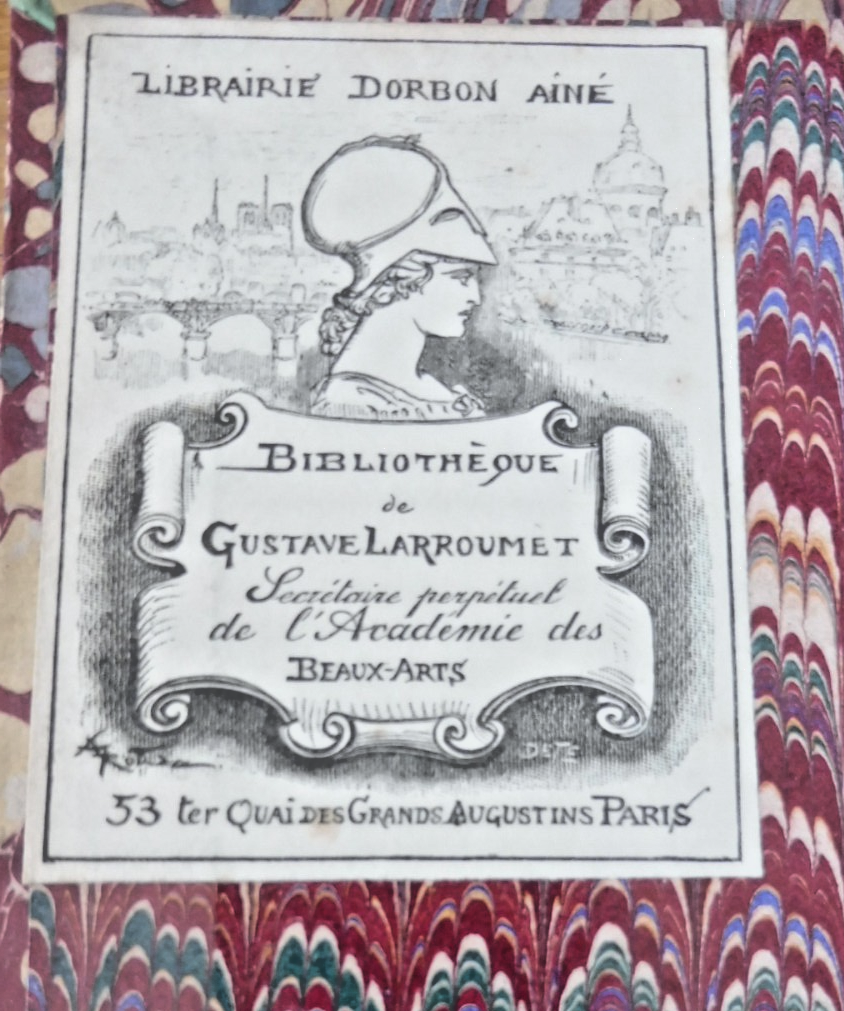 LIBRAIRIE DORBON AINÉ
BIBLIOTHÈQUE
de
GUSTAVE LARROUMET
Secrétaire perpétuel
de l'Académie des
BEAUX-ARTS
53 ter QUAI DES GRANDS AUGUSTINS PARIS